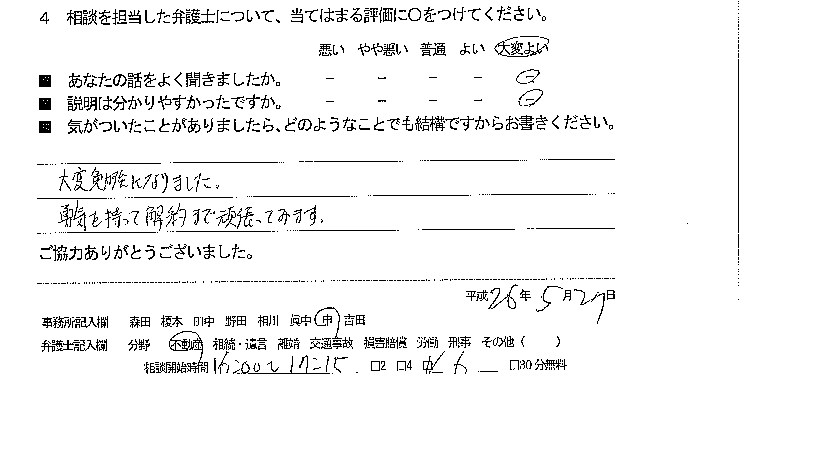 4 相談を担当した弁護士について、当てはまる評価に〇をつけてください。
悪い やや悪い 普通 よい 大変よい
■ あなたの話をよく聞きましたか。 － － － － －
■ 説明は分かりやすかったですか。 － － － － －
■ 気がついたことがありましたら、どのようなことでも結構ですからお書きください。
大変勉強になりました。
勇気を持って解約まで頑張ってみます。
ご協力ありがとうございました。
平成 26 年 5 月 27 日
事務所記入欄 森田 榎本 田中 野田 相川 眞中 申 吉田
弁護士記入欄 分野 不動産 相続・遺言 離婚 交通事故 損害賠償 労働 刑事 その他（ ）
相談開始時間 16:00〜17:15 □2 □4 □30分無料